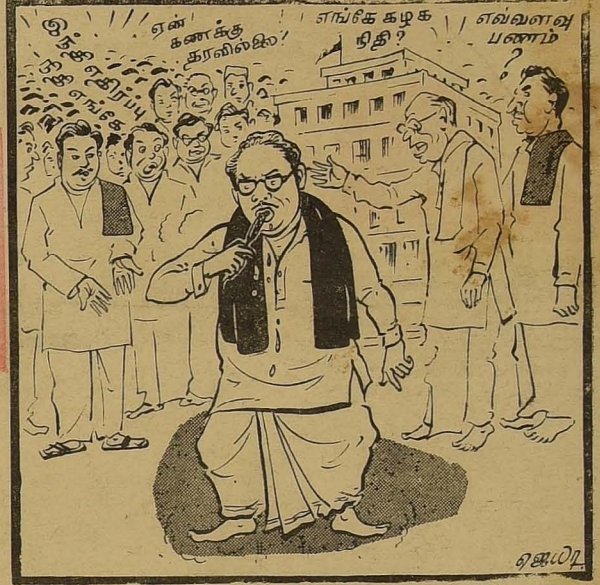 இந்தி எதிர்ப்பு
நிதி எங்கே
ஏன்
கணக்கு
தரவில்லை!
எங்கே கழக
நிதி?
எவ்வளவு
பணம்
?